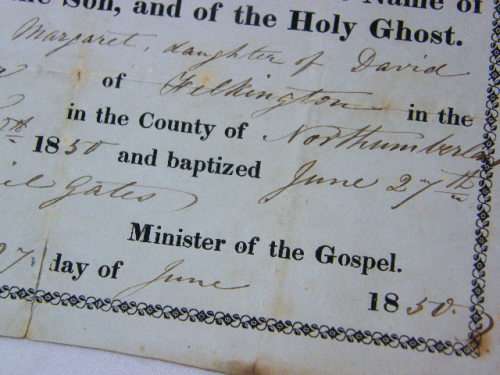 Name of
the Son, and of the Holy Ghost.
Margaret, daughter of David
of Felkington in the
in the County of Northumberland
1850 and baptized June 27th
Gates
Minister of the Gospel.
27 day of June 1850.